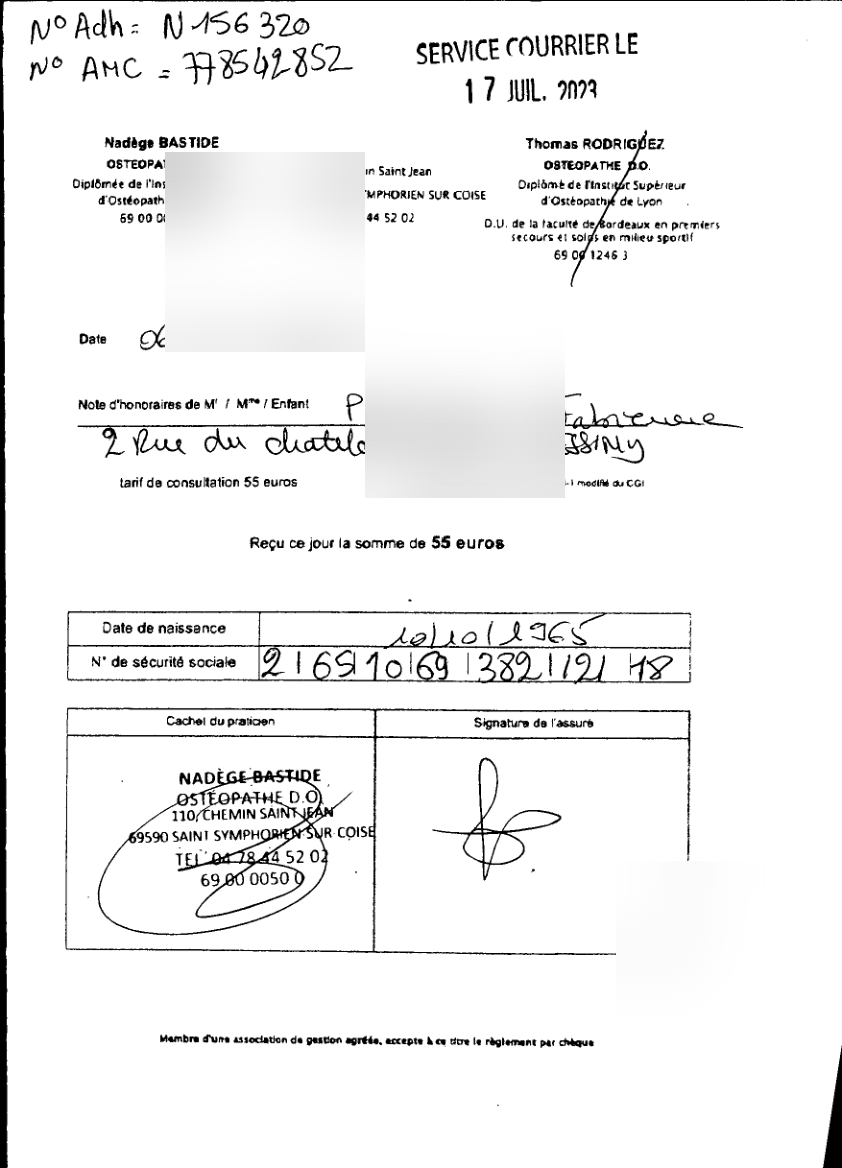 N° Adh = N 156 320
N° AMC = 778542852
SERVICE COURRIER LE
17 JUIL. 2023
Nadège BASTIDE
OSTEOPA
Diplômée de l'Ins
d'Ostéopath
69 00 0
in Saint Jean
MPHORIEN SUR COISE
44 52 02
Thomas RODRIGUEZ
OSTEOPATHE D.O.
Diplômé de l'Institut Supérieur
d'Ostéopathie de Lyon
D.U. de la faculté de Bordeaux en premiers
secours et soins en milieu sportif
69 00 1246 3
Date 06
Note d'honoraires de Mr / Mme / Enfant P
2 Rue du chatel SSINY
tarif de consultation 55 euros
-1 modifié du CGI
Reçu ce jour la somme de 55 euros
Date de naissance 10/10/1965
N° de sécurité sociale 2 | 65 | 10 | 69 | 382 | 121 78
Cachet du praticien
Signature de l'assuré
NADÈGE BASTIDE
OSTÉOPATHE D.O
110, CHEMIN SAINT JEAN
69590 SAINT SYMPHORIEN SUR COISE
TEL 04 78 44 52 02
69 00 0050 0
Membre d'une association de gestion agréée, accepte à ce titre le règlement par chèque